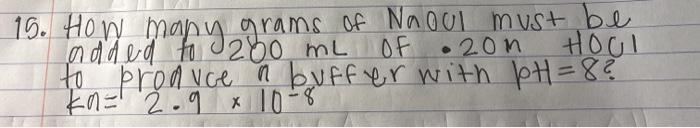 15. How many grams of NaOCl must be
added to 200 mL of .20M HOCl
to produce a buffer with pH=8?
ka= 2.9 x 10-8